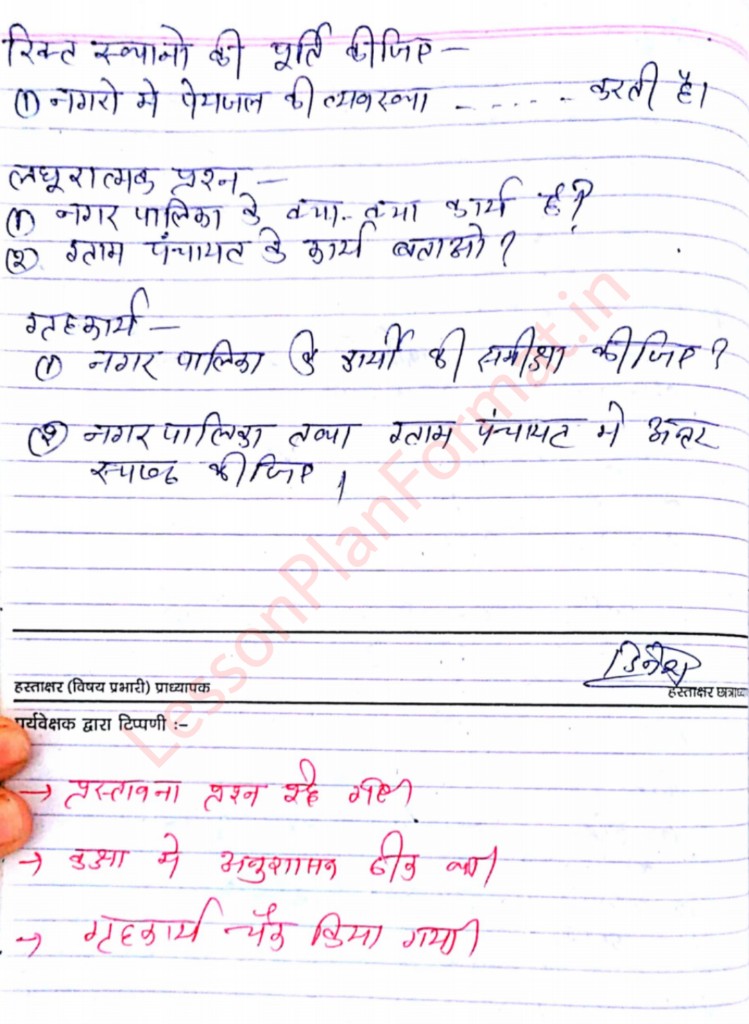 रिक्त स्थानो की पूर्ति कीजिए –
(1) नगरो मे पेयजल की व्यवस्था - - - - - करती है।
लघूरात्मक प्रश्न –
(1) नगर पालिका के क्या-क्या कार्य है?
(2) ग्राम पंचायत के कार्य बताओ?
गृहकार्य –
(1) नगर पालिका के कार्यो की समीक्षा कीजिए?
(2) नगर पालिका तथा ग्राम पंचायत मे अन्तर
स्पष्ट कीजिए।
दिनेश
हस्ताक्षर (विषय प्रभारी) प्राध्यापक
हस्ताक्षर छात्राध
पर्यवेक्षक द्वारा टिप्पणी :–
→ प्रस्तावना प्रश्न गए।
→ कक्षा मे अनुशासन ठीक था।
→ गृहकार्य चैक किया गया।
LessonPlanFormat.in